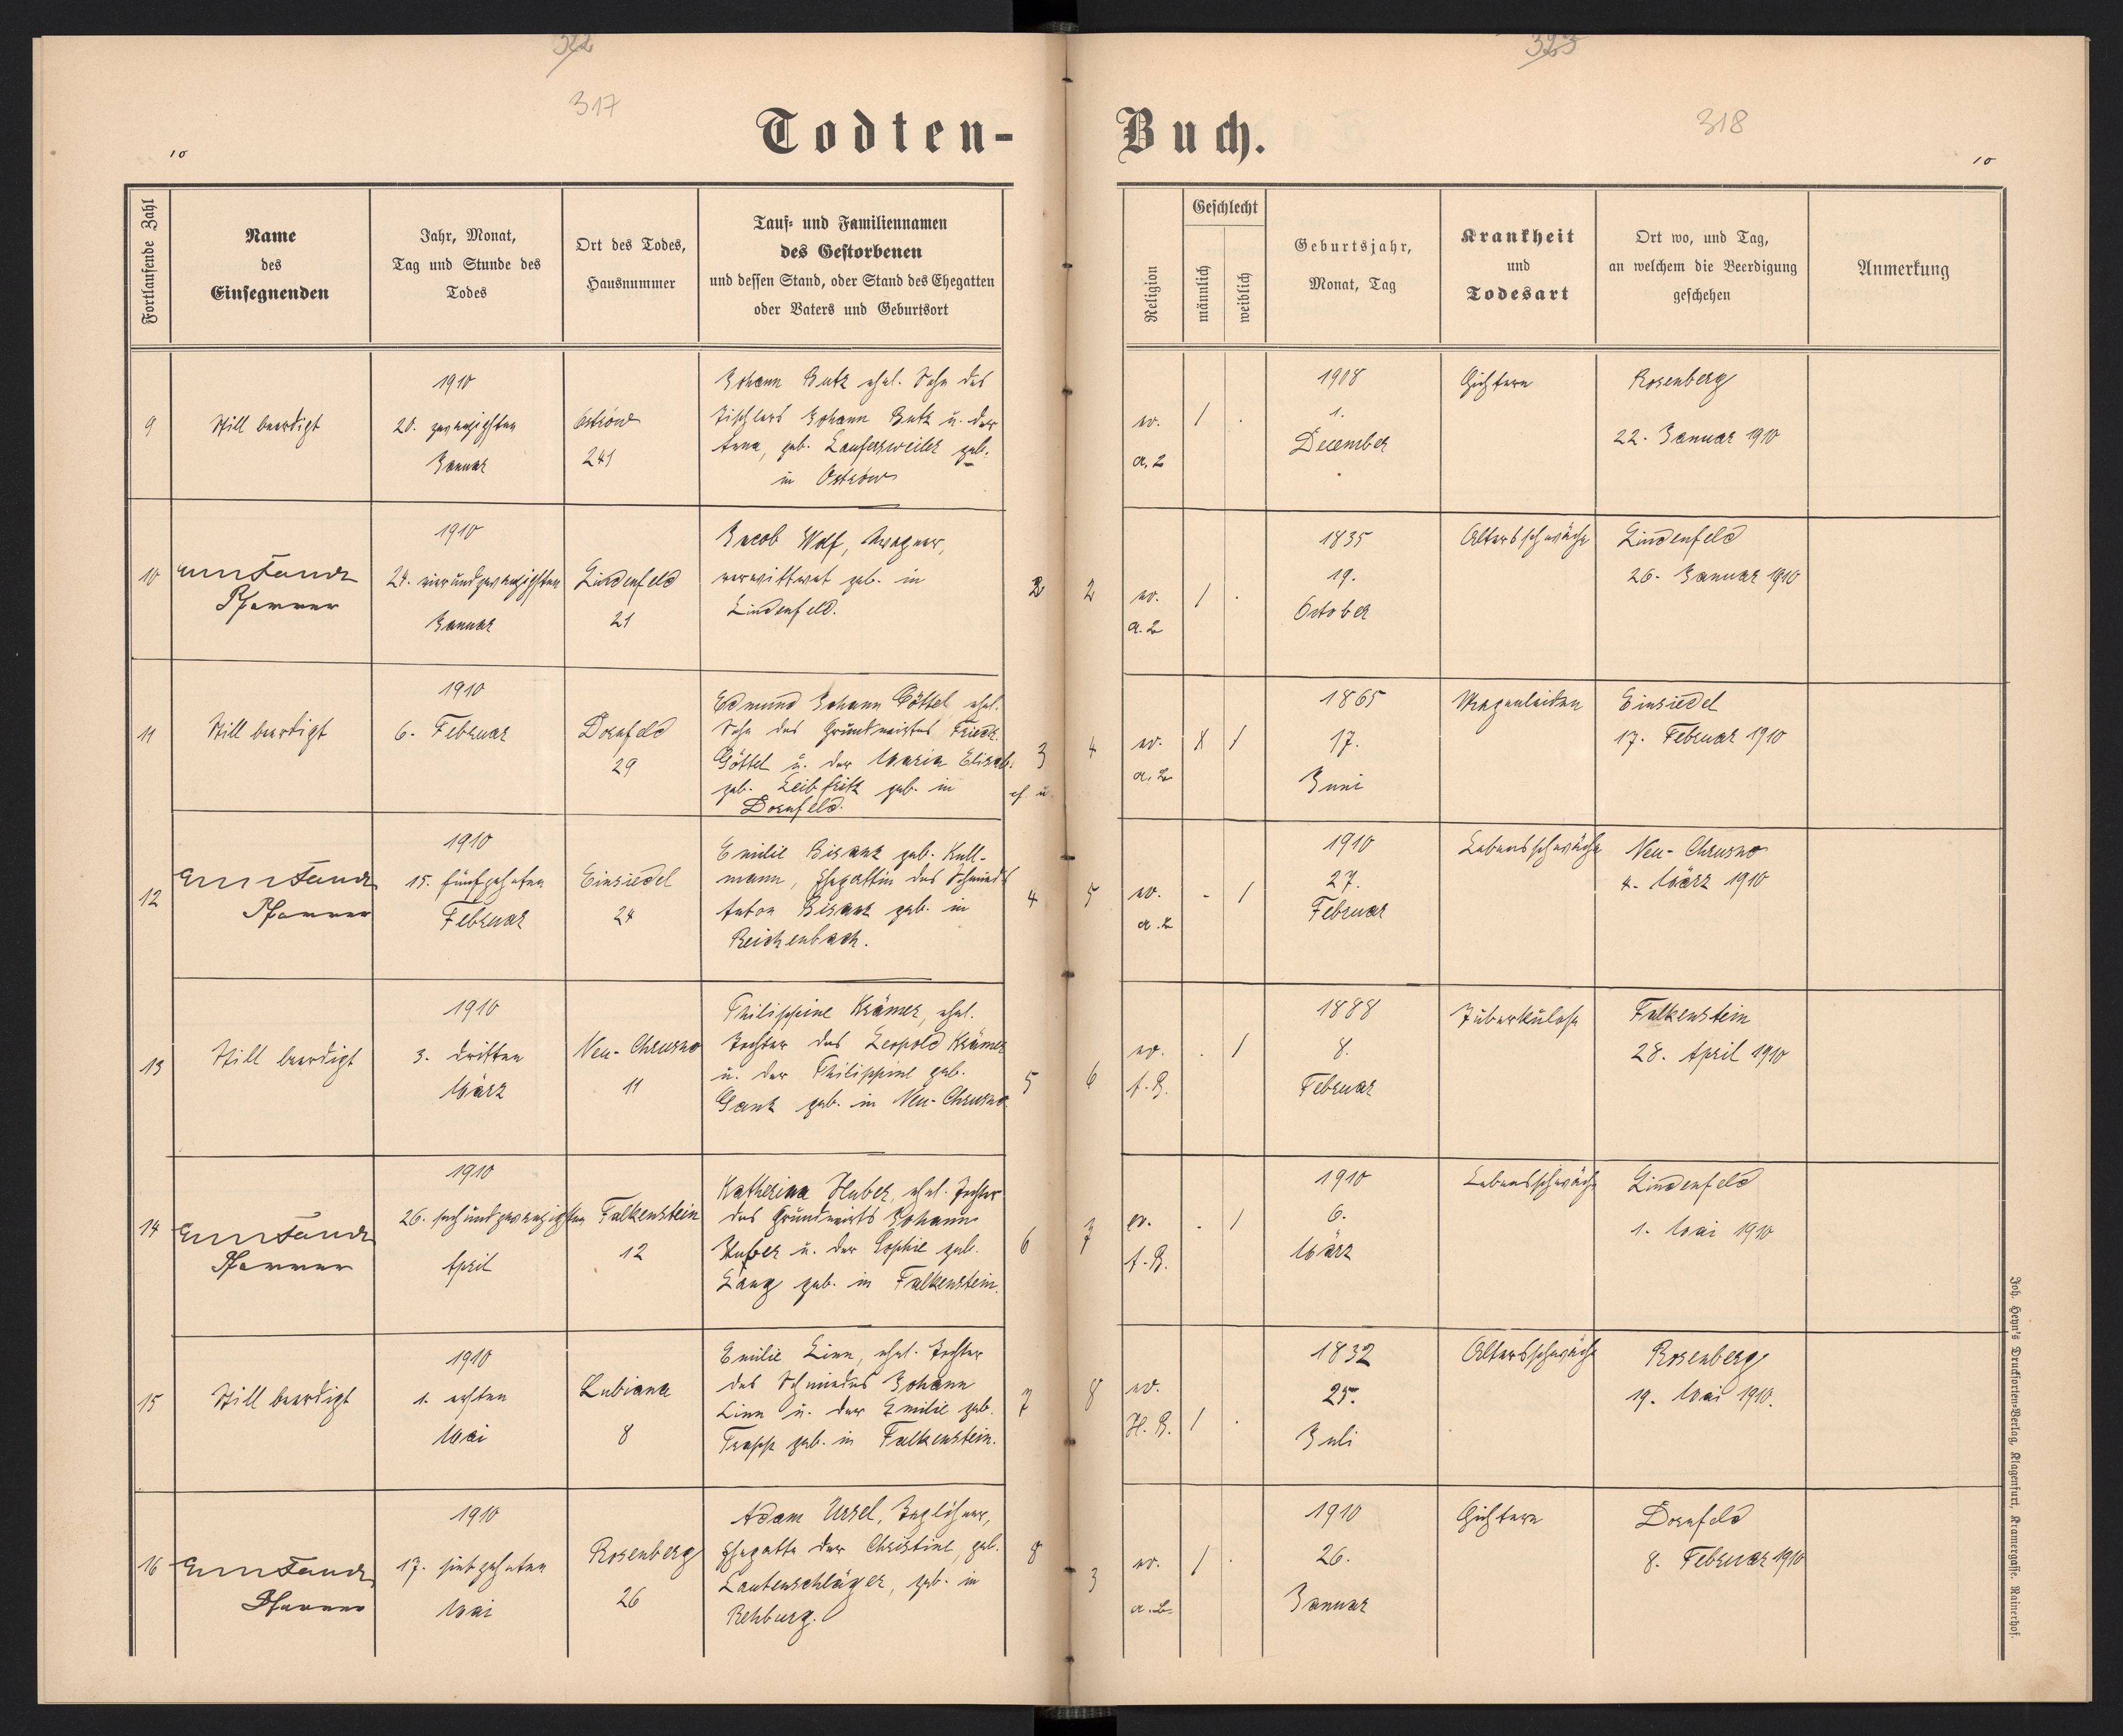 322
317
Todten-
10
Fortlaufende Zahl
Name
des
Einsegnenden
Jahr, Monat,
Tag und Stunde des
Todes
Ort des Todes,
Hausnummer
Tauf- und Familiennamen
des Gestorbenen
und dessen Stand, oder Stand des Ehegatten
oder Vaters und Geburtsort
9
Still beerdigt
1910
20. zwanzigsten
Januar
Ostrów
241
Johann Butz ehel. Sohn des
Tischlers Johann Butz u. der
Anna, geb. Laufersweiler geb.
in Ostrów
10
Pfarrer
1910
24. vierundzwanzigsten
Januar
Lindenfeld
21
Jacob Wolf, Wagner,
verwittwet geb. in
Lindenfeld.
2
11
Still beerdigt
1910
6. Februar
Dornfeld
29
Edmund Johann Göttel, ehel.
Sohn des Grundwirtes Friedr.
Göttel u. der Maria Elisab.
geb. Leibfritz geb. in
Dornfeld.
3
12
Pfarrer
1910
15. fünfzehnten
Februar
Einsiedel
24
Emilie Bisanz geb. Kull-
mann, Ehegattin des Schmieds
Anton Bisanz geb. in
Reichenbach.
4
13
Still beerdigt
1910
3. dritten
März
Neu-Chrusno
11
Philippine Krämer, ehel.
Tochter des Leopold Krämer
u. der Philippine geb.
Ganz geb. in Neu-Chrusno
5
14
Pfarrer
1910
26. sechundzwanzigsten
April
Falkenstein
12
Katherina Huber, ehel. Tochter
des Grundwirts Johann
Huber u. der Sophie geb.
Lang geb. in Falkenstein.
6
15
Still beerdigt
1910
1. ersten
Mai
Lubiana
8
Emilie Linn, ehel. Tochter
des Schmiedes Johann
Linn u. der Emilie geb.
Trapp geb. in Falkenstein.
7
16
Pfarrer
1910
17. siebzehnten
Mai
Rosenberg
26
Adam Ursel, Taglöhner,
Ehegatte der Christine, geb.
Lautenschläger, geb. in
Rehburg.
8
323
318
Buch.
10
Religion
Geschlecht
männlich
weiblich
Geburtsjahr,
Monat, Tag
Krankheit
und
Todesart
Ort wo, und Tag,
an welchem die Beerdigung
geschehen
Anmerkung
ev.
a. B
/
1908
1.
December
Gichtern
Rosenberg
22. Januar 1910
2
ev.
a. B
/
1835
19.
October
Altersschwäche
Lindenfeld
26. Januar 1910
4
ev.
a. B
/
1865
17.
Juni
Magenleiden
Einsiedel
17. Februar 1910
5
ev.
a. B
- /
1910
27.
Februar
Lebensschwäche
Neu-Chrusno
4. März 1910
6
ev.
. /
1888
8.
Februar
Tuberkulose
Falkenstein
28. April 1910
7
ev.
. /
1910
6.
März
Lebensschwäche
Lindenfeld
1. Mai 1910
8
ev.
H. B.
/
1832
25.
Juli
Altersschwäche
Rosenberg
19. Mai 1910.
3
ev.
a. B.
/
1910
26.
Januar
Gichtern
Dornfeld
8. Februar 1910
Joh. Heyn's Drucksorten-Verlag, Klagenfurt, Kramergasse, Rainerhof.